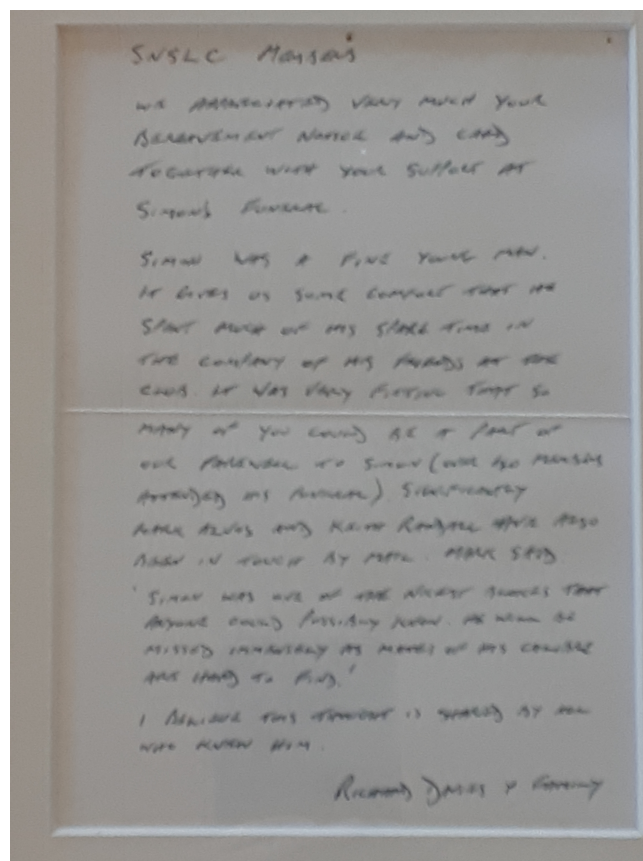 SNSLC Members
WE APPRECIATED VERY MUCH YOUR
BEREAVEMENT NOTICE AND CARD
TOGETHER WITH YOUR SUPPORT AT
SIMON'S FUNERAL.
SIMON WAS A FINE YOUNG MAN.
IT GIVES US SOME COMFORT THAT HE
SPENT MUCH OF HIS SPARE TIME IN
THE COMPANY OF HIS FRIENDS AT THE
CLUB. IT WAS VERY FITTING THAT SO
MANY OF YOU COULD BE A PART OF
OUR FAREWELL TO SIMON (OVER MEMBERS
ATTENDED HIS FUNERAL). SIGNIFICANTLY
MARK AND KEITH RANDALL HAVE ALSO
BEEN IN TOUCH BY MAIL. MARK SAID
'SIMON WAS ONE OF THE NICEST BLOKES THAT
ANYONE COULD POSSIBLY KNOW. HE WILL BE
MISSED IMMENSELY AS MATES OF HIS CALIBRE
ARE HARD TO FIND.'
I BELIEVE THIS THOUGHT IS SHARED BY ALL
WHO KNEW HIM.
RICHARD & FAMILY